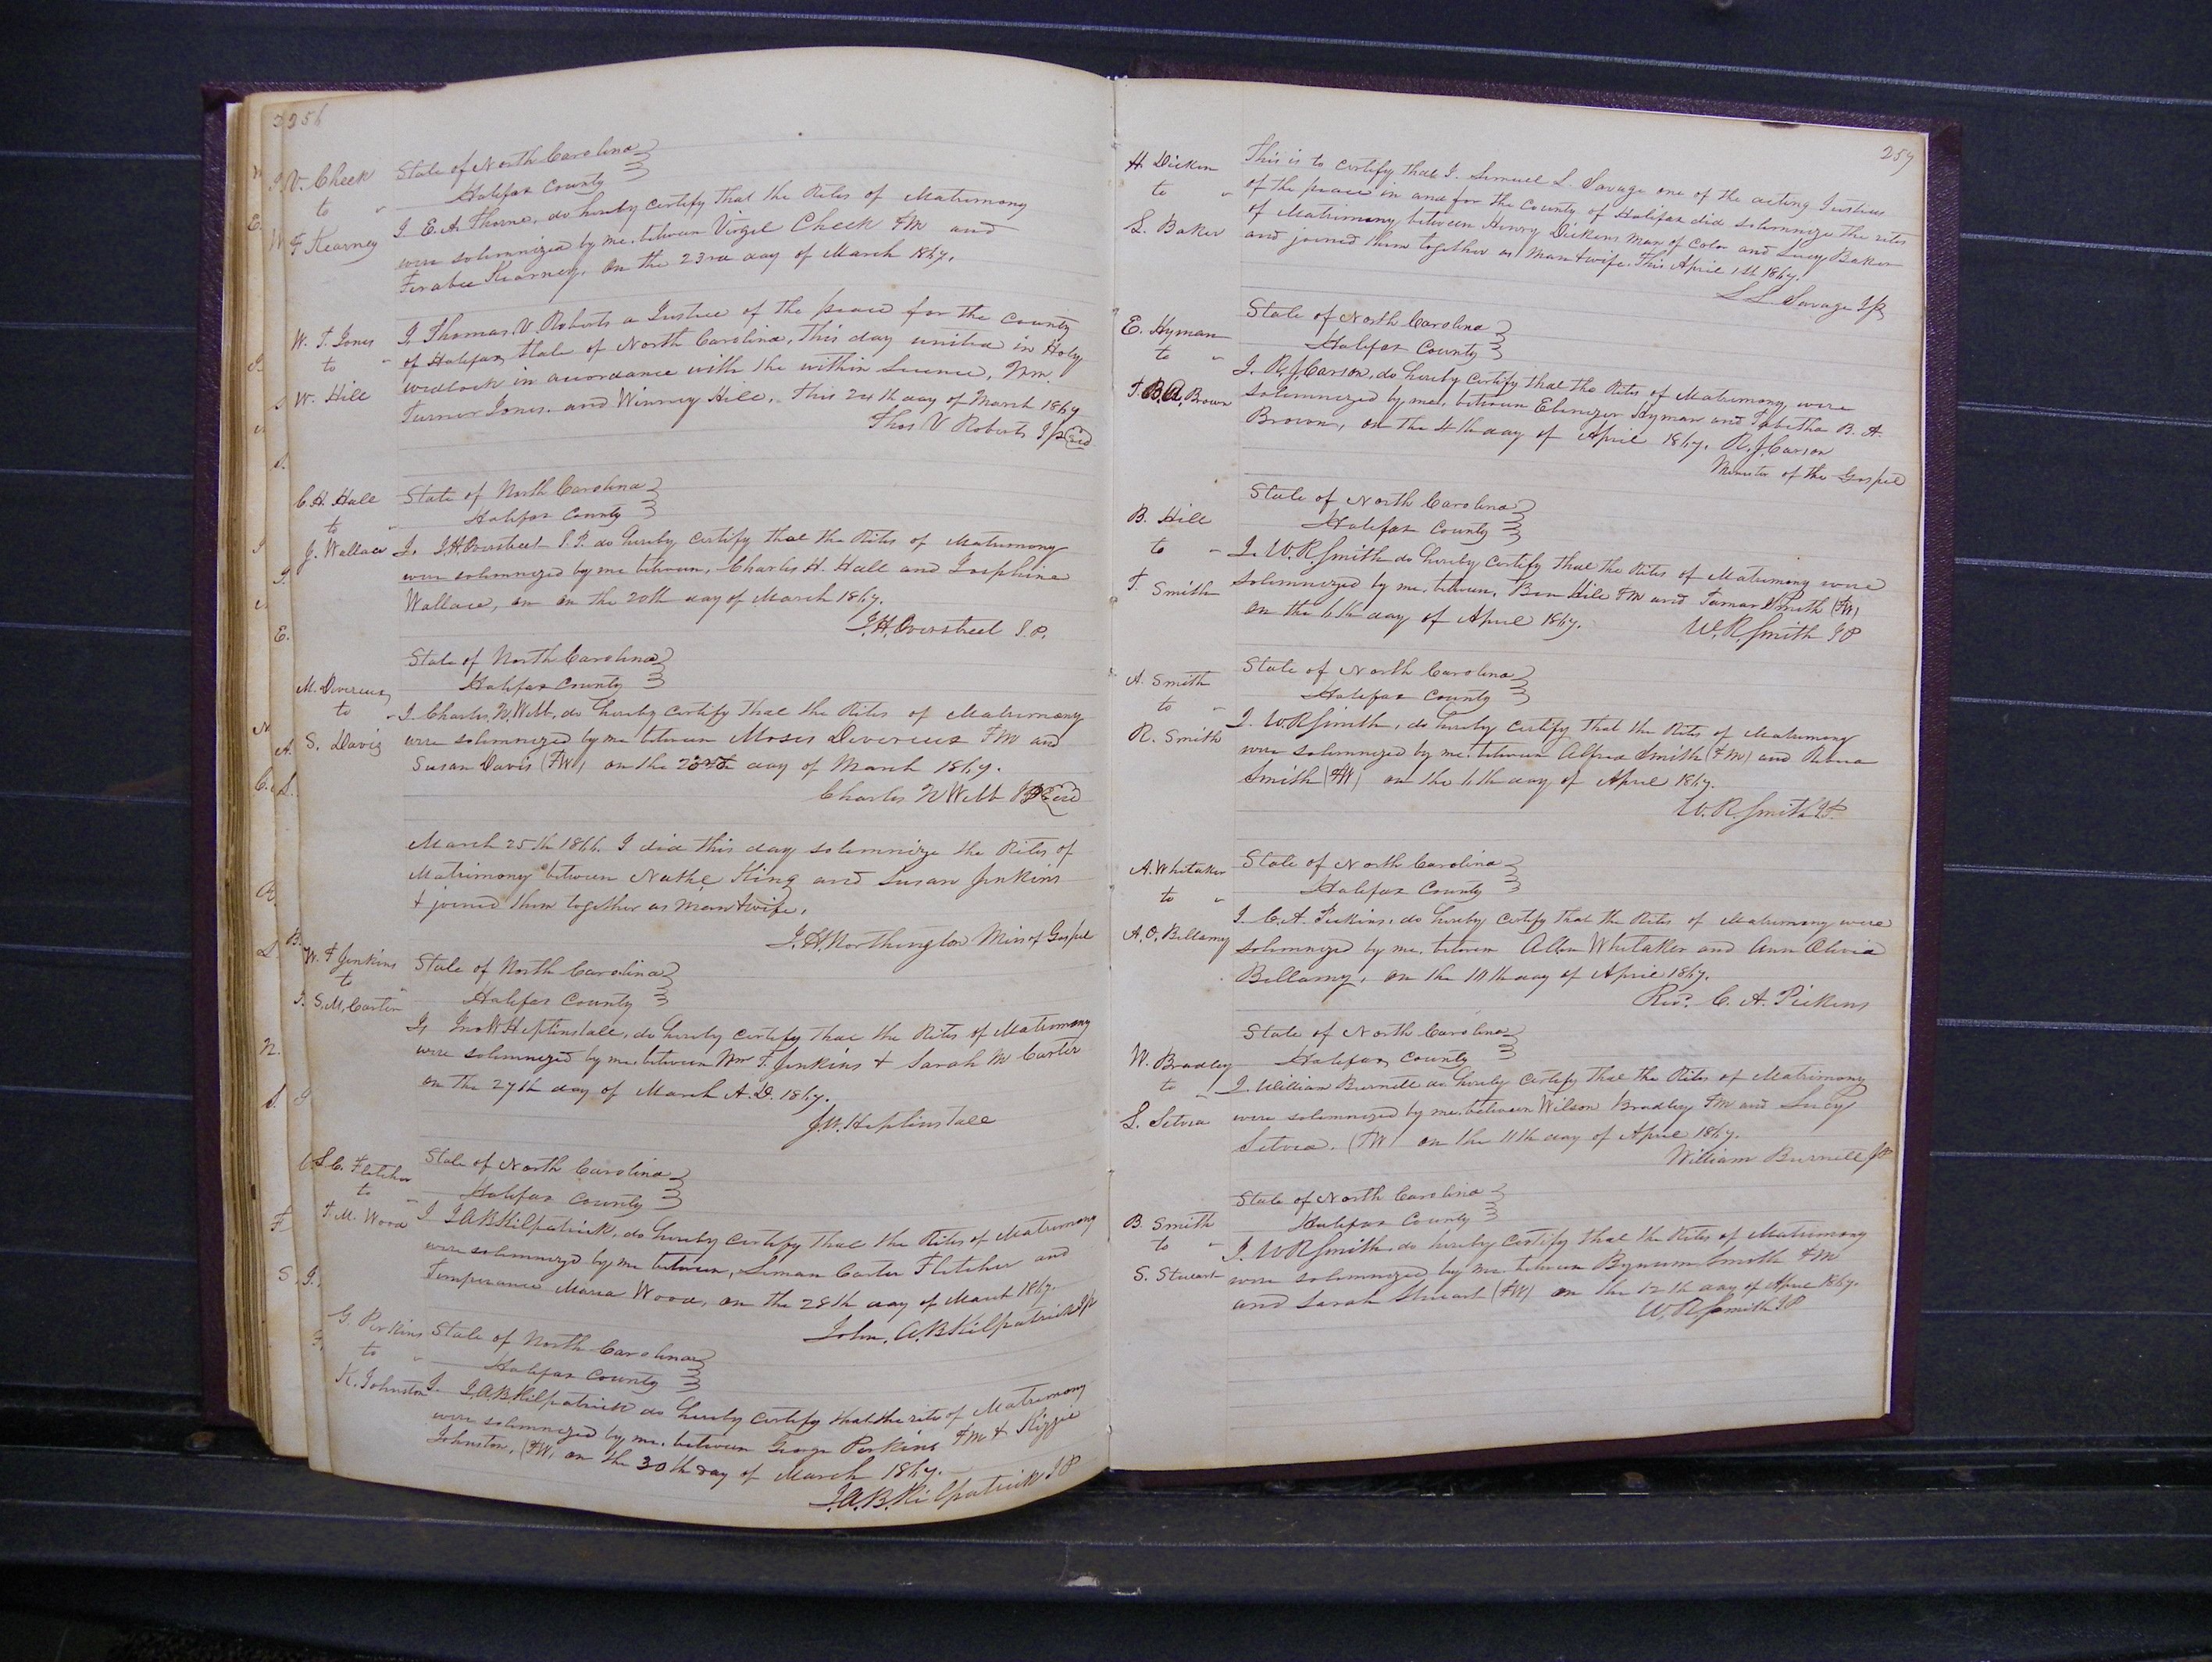 256
V. Cheek
to "
F Kearney
State of North Carolina
Halifax County
I E. A. Thorne, do hereby certify that the Rites of Matrimony
were solemnized by me. between Virgil Cheek FM and
Ferabee Kearney, on the 23rd day of March 1867.
W. T. Jones
to "
W. Hill
I, Thomas V. Roberts a Justice of the peace for the County
of Halifax, State of North Carolina, This day united in Holy
wedlock in accordance with the within License, Wm.
Turner Jones. and Winney Hill, This 24th day of March 1867
Thos V Roberts JP
C. H. Hale
to "
J. Wallace
State of North Carolina
Halifax County
I, J. H. Overstreet J. P. do hereby certify that the Rites of Matrimony
were solemnized by me between, Charles H. Hale and Josephine
Wallace, on on the 20th day of March 1867.
J. H. Overstreet J. P.
M. Devereux
to "
S. Davis
State of North Carolina
Halifax County
I Charles N. Webb, do hereby certify that the Rites of Matrimony
were solemnized by me between Moses Devereux FM and
Susan Davis (FW) on the day of March 1867.
Charles N Webb JP
March 25th 1866. I did this day solemnize the Rites of
Matrimony between King and Susan Jenkins
& joined them together as man & wife,
J. H. Northington Min of Gospel
W. F Jenkins
to "
S. M. Carter
State of North Carolina
Halifax County
I, Jno W Heptinstall, do hereby certify that the Rites of Matrimony
were solemnized by me between Wm F. Jenkins & Sarah M Carter
on the 27th day of March A. D. 1867.
J. W. Heptinstall
L. C. Fletcher
to "
T. M. Wood
State of North Carolina
Halifax County
I J A B Kilpatrick, do hereby certify that the Rites of Matrimony
were solemnized by me between, Leman Carter Fletcher and
Temperance Maria Wood, on the 28th day of March 1867.
John. A. B Kilpatrick JP
G. Perkins
to "
K. Johnston
State of North Carolina
Halifax County
I. J. A. B. Kilpatrick do hereby certify that the rites of Matrimony
were solemnized by me. between George Perkins FM & Kizzie
Johnston, (FW) on the 30th day of March 1867.
J. A. B. Kilpatrick J P
257
H. Dicken
to "
L. Baker
This is to certify that I. Lemuel L. Savage one of the acting Justices
of the peace in and for the County of Halifax did solemnize the rites
of Matrimony, between Henry Dickens Man of Color and Lucy Baker
and joined them together as Man & wife. This April 1st 1867.
L. L. Savage JP
E. Hyman
to "
T. B. A. Brown
State of North Carolina
Halifax County
I. R. J. Carson, do hereby certify that the Rites of Matrimony were
solemnized by me, between Ebenezer Hyman and Tabitha B. A.
Brown, on the 4th day of April 1867. R. J. Carson
Minister of the Gospel
B. Hill
to "
T. Smith
State of North Carolina
Halifax County
I. W. R. Smith do hereby certify that the Rites of Matrimony were
solemnized by me. between, Ben Hill FM and Tamar Smith (FW)
on the 6th day of April 1867.
W. R. Smith J P
A. Smith
to "
R. Smith
State of North Carolina
Halifax County
I. W R Smith, do hereby certify that the Rites of Matrimony
were solemnized by me. between Alfred Smith (FM) and
Smith (FW) on the 6th day of April 1867.
W. R. Smith J. P.
A. Whitaker
to "
A. O. Bellamy
State of North Carolina
Halifax County
I. C. A. Pickens, do hereby certify that the Rites of Matrimony were
solemnized by me. between Allen Whitaker and Ann Olivia
Bellamy, on the day of April 1867.
Revd. C. A. Pickens
W. Bradley
to "
L. Setvia
State of North Carolina
Halifax County
I. William Burnett do hereby certify that the Rites of Matrimony
were solemnized by me. between Wilson Bradley FM and Lucy
Setvia. (FW) on the 11th day of April 1867.
William Burnett JP
B. Smith
to "
S. Stuart
State of North Carolina
Halifax County
I. W R Smith do hereby certify that the Rites of Matrimony
were solemnized by me. between Bynum Smith FM
and Sarah Stuart (FW) on the 12th day of April 1867.
W. R. Smith J P